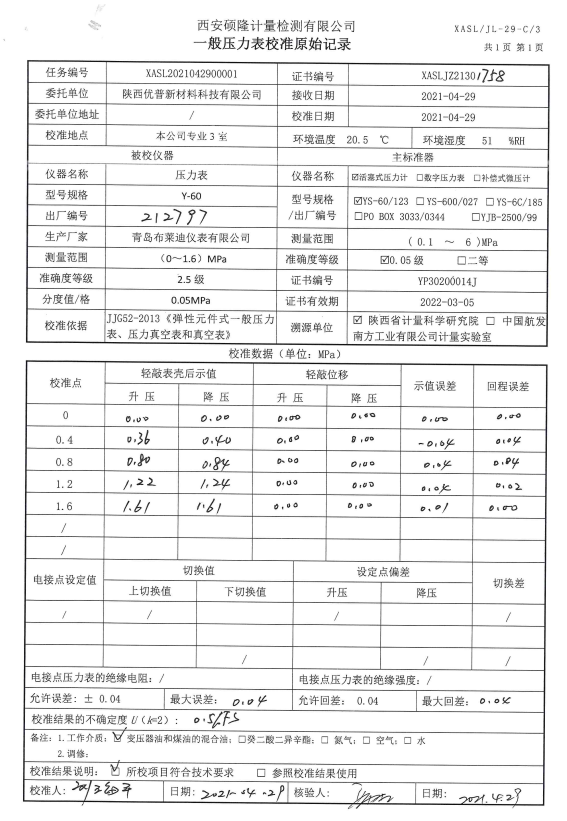 西安硕隆计量检测有限公司
XASL/JL-29-C/3
一般压力表校准原始记录
共1页 第1页
任务编号 XASL2021042900001 证书编号 XASLJZ21301758
委托单位 陕西优普新材料科技有限公司 接收日期 2021-04-29
委托单位地址 / 校准日期 2021-04-29
校准地点 本公司专业3室 环境温度 20.5 ℃ 环境湿度 51 %RH
被校仪器 主标准器
仪器名称 压力表 仪器名称 ☑活塞式压力计 □数字压力表 □补偿式微压计
型号规格 Y-60 型号规格/出厂编号 ☑YS-60/123 □YS-600/027 □YS-6C/185
出厂编号 212797 □PO BOX 3033/0344 □YJB-2500/99
生产厂家 青岛布莱迪仪表有限公司 测量范围 (0.1 ~ 6)MPa
测量范围 (0~1.6) MPa 准确度等级 ☑0.05 级 □二等
准确度等级 2.5 级 证书编号 YP30200014J
分度值/格 0.05MPa 证书有效期 2022-03-05
校准依据 JJG52-2013《弹性元件式一般压力 溯源单位 ☑ 陕西省计量科学研究院 □ 中国航发
表、压力真空表和真空表》 南方工业有限公司计量实验室
校准数据(单位:MPa)
校准点 轻敲表壳后示值 轻敲位移 示值误差 回程误差
升 压 降 压 升 压 降 压
0 0.00 0.00 0.00 0.00 0.00 0.00
0.4 0.36 0.40 0.00 0.00 -0.04 0.04
0.8 0.80 0.84 0.00 0.00 0.04 0.04
1.2 1.22 1.24 0.00 0.00 0.04 0.02
1.6 1.61 1.61 0.00 0.00 0.01 0.00
/
/
电接点设定值 切换值 设定点偏差 切换差
上切换值 下切换值 升压 降压
/ / / /
/ / /
电接点压力表的绝缘电阻:/ 电接点压力表的绝缘强度:/
允许误差:± 0.04 最大误差:0.04 允许回差:0.04 最大回差:0.04
校准结果的不确定度 U (k=2):0.5%FS
备注:1.工作介质:☑ 变压器油和煤油的混合油;□癸二酸二异辛酯;□ 氮气;□ 空气;□ 水
2.调修:
校准结果说明:☑ 所校项目符合技术要求 □ 参照校准结果使用
校准人: 日期:2021-04-29 核验人: 日期:2021.4.29